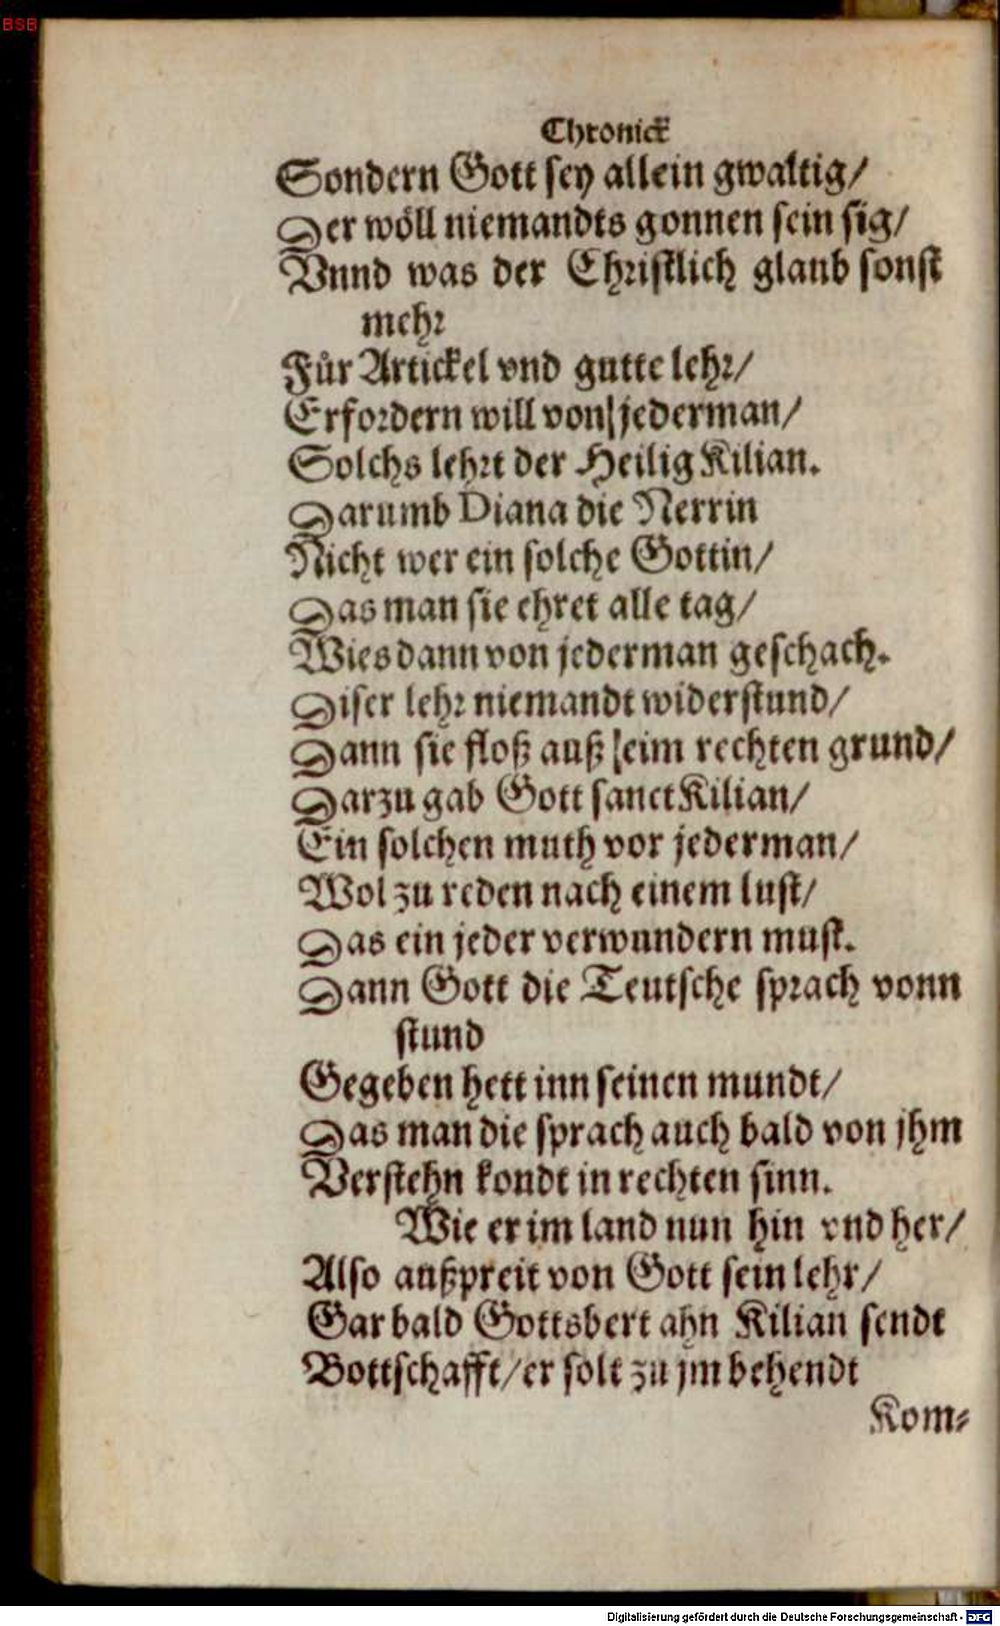 BSB
Chronick
Sondern Gott sey allein gwaltig/
Der wöll niemandts gonnen sein sig/
Vnnd was der Christlich glaub sonst
mehr
Für Artickel vnd gutte lehr/
Erfordern will von jederman/
Solchs lehrt der Heilig Kilian.
Darumb Diana die Nerrin
Nicht wer ein solche Gottin/
Das man sie ehret alle tag/
Wies dann von jederman geschach.
Diser lehr niemandt widerstund/
Dann sie floß auß seim rechten grund/
Darzu gab Gott sanct Kilian/
Ein solchen muth vor jederman/
Wol zu reden nach einem lust/
Das ein jeder verwundern must.
Dann Gott die Teutsche sprach vonn
stund
Gegeben hett inn seinen mundt/
Das man die sprach auch bald von jhm
Verstehn kondt in rechten sinn.
Wie er im land nun hin vnd her/
Also außpreit von Gott sein lehr/
Gar bald Gottsbert ahn Kilian sendt
Bottschafft/er solt zu jm behendt
Kom⸗
Digitalisierung gefördert durch die Deutsche Forschungsgemeinschaft - DFG